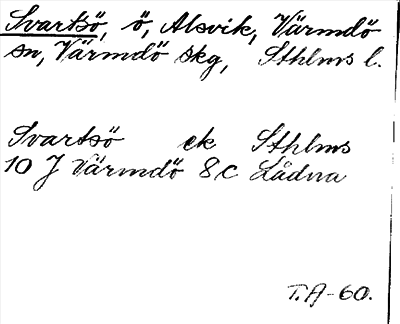 Svartsö, ö, Alsvik, Värmdö
sn, Värmdö skg, Sthlms l.
Svartsö ek Sthlms
10 J Värmdö 8 c Lådna
T.A-60.